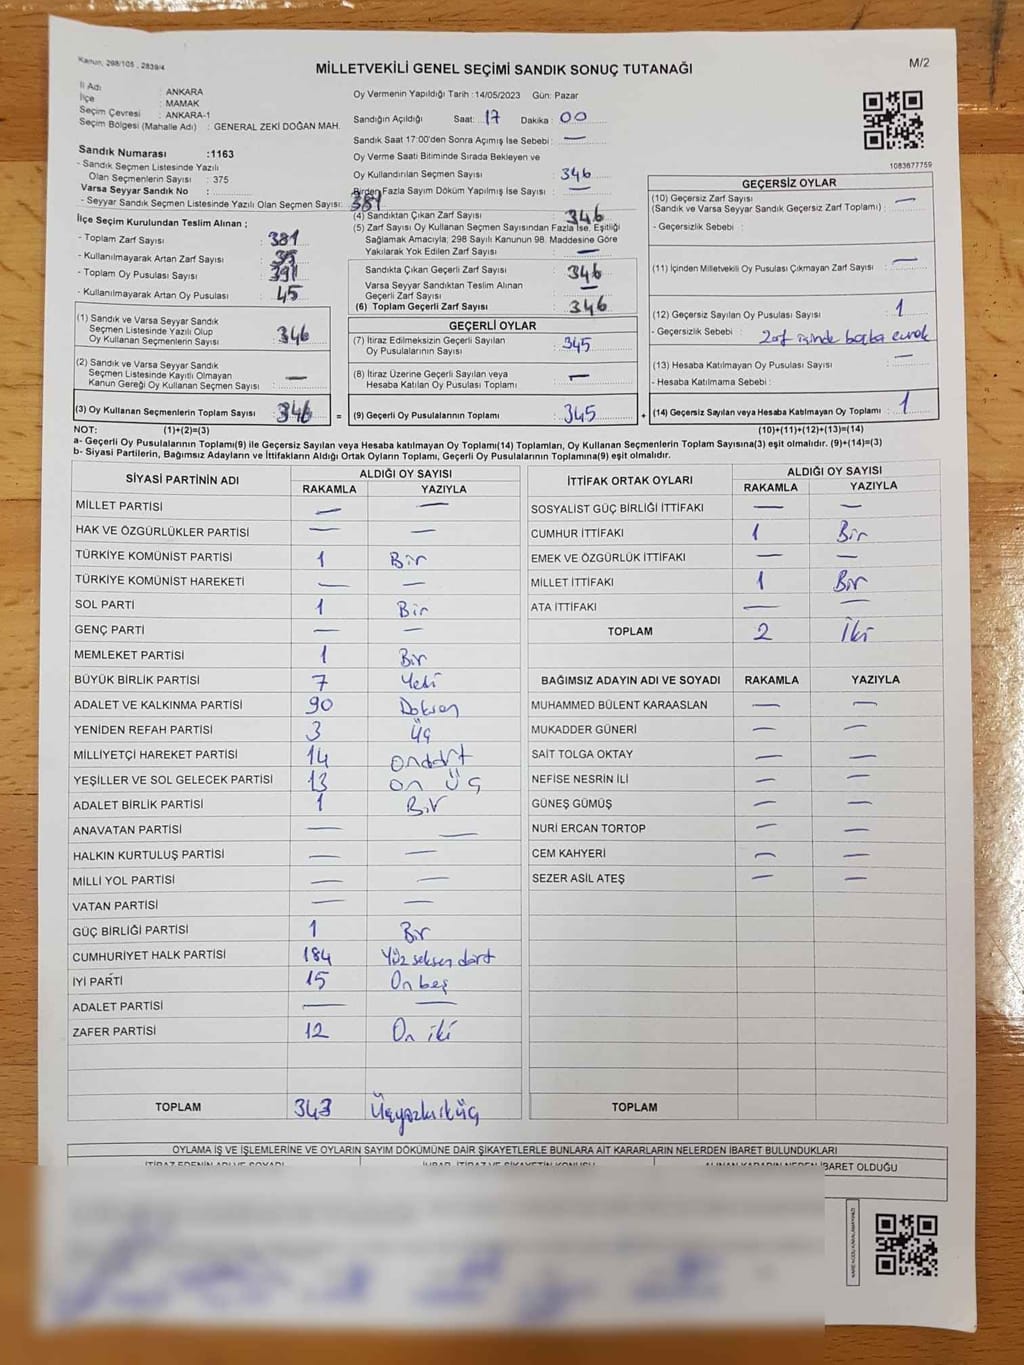 Kanun, 298/105 , 2839/4
MİLLETVEKİLİ GENEL SEÇİMİ SANDIK SONUÇ TUTANAĞI
M/2
İl Adı : ANKARA
İlçe : MAMAK
Seçim Çevresi : ANKARA-1
Seçim Bölgesi (Mahalle Adı) : GENERAL ZEKİ DOĞAN MAH.
Sandık Numarası :1163
- Sandık Seçmen Listesinde Yazılı
Olan Seçmenlerin Sayısı : 375
Varsa Seyyar Sandık No :
- Seyyar Sandık Seçmen Listesinde Yazılı Olan Seçmen Sayısı: 381
İlçe Seçim Kurulundan Teslim Alınan ;
- Toplam Zarf Sayısı : 381
- Kullanılmayarak Artan Zarf Sayısı : 35
- Toplam Oy Pusulası Sayısı : 391
- Kullanılmayarak Artan Oy Pusulası : 45
(1) Sandık ve Varsa Seyyar Sandık
Seçmen Listesinde Yazılı Olup
Oy Kullanan Seçmenlerin Sayısı : 346
(2) Sandık ve Varsa Seyyar Sandık
Seçmen Listesinde Kayıtlı Olmayan
Kanun Gereği Oy Kullanan Seçmen Sayısı : —
(3) Oy Kullanan Seçmenlerin Toplam Sayısı : 346 =
Oy Vermenin Yapıldığı Tarih :14/05/2023 Gün: Pazar
Sandığın Açıldığı Saat: 17 Dakika : 00
Sandık Saat 17:00'den Sonra Açımış İse Sebebi : —
Oy Verme Saati Bitiminde Sırada Bekleyen ve
Oy Kullandırılan Seçmen Sayısı : 346
Birden Fazla Sayım Döküm Yapılmış İse Sayısı : —
(4) Sandıktan Çıkan Zarf Sayısı : 346
(5) Zarf Sayısı Oy Kullanan Seçmen Sayısından Fazla İse, Eşitliği
Sağlamak Amacıyla; 298 Sayılı Kanunun 98. Maddesine Göre
Yakılarak Yok Edilen Zarf Sayısı : —
Sandıkta Çıkan Geçerli Zarf Sayısı : 346
Varsa Seyyar Sandıktan Teslim Alınan
Geçerli Zarf Sayısı : —
(6) Toplam Geçerli Zarf Sayısı : 346
GEÇERLİ OYLAR
(7) İtiraz Edilmeksizin Geçerli Sayılan
Oy Pusulalarının Sayısı : 345
(8) İtiraz Üzerine Geçerli Sayılan veya
Hesaba Katılan Oy Pusulası Toplamı : —
(9) Geçerli Oy Pusulalarının Toplamı : 345 +
1083677759
GEÇERSİZ OYLAR
(10) Geçersiz Zarf Sayısı
(Sandık ve Varsa Seyyar Sandık Geçersiz Zarf Toplamı) : —
- Geçersizlik Sebebi :
(11) İçinden Milletvekili Oy Pusulası Çıkmayan Zarf Sayısı : —
(12) Geçersiz Sayılan Oy Pusulası Sayısı : 1
- Geçersizlik Sebebi : Zarf içinde başka evrak
(13) Hesaba Katılmayan Oy Pusulası Sayısı : —
- Hesaba Katılmama Sebebi :
(14) Geçersiz Sayılan veya Hesaba Katılmayan Oy Toplamı : 1
NOT: (1)+(2)=(3) (10)+(11)+(12)+(13)=(14)
a- Geçerli Oy Pusulalarının Toplamı(9) ile Geçersiz Sayılan veya Hesaba katılmayan Oy Toplamı(14) Toplamları, Oy Kullanan Seçmenlerin Toplam Sayısına(3) eşit olmalıdır. (9)+(14)=(3)
b- Siyasi Partilerin, Bağımsız Adayların ve İttifakların Aldığı Ortak Oyların Toplamı, Geçerli Oy Pusulalarının Toplamına(9) eşit olmalıdır.
SİYASİ PARTİNİN ADI ALDIĞI OY SAYISI
RAKAMLA YAZIYLA
MİLLET PARTİSİ — —
HAK VE ÖZGÜRLÜKLER PARTİSİ — —
TÜRKİYE KOMÜNİST PARTİSİ 1 Bir
TÜRKİYE KOMÜNİST HAREKETİ — —
SOL PARTİ 1 Bir
GENÇ PARTİ — —
MEMLEKET PARTİSİ 1 Bir
BÜYÜK BİRLİK PARTİSİ 7 Yedi
ADALET VE KALKINMA PARTİSİ 90 Doksan
YENİDEN REFAH PARTİSİ 3 Üç
MİLLİYETÇİ HAREKET PARTİSİ 14 ondört
YEŞİLLER VE SOL GELECEK PARTİSİ 13 on üç
ADALET BİRLİK PARTİSİ 1 Bir
ANAVATAN PARTİSİ — —
HALKIN KURTULUŞ PARTİSİ — —
MİLLİ YOL PARTİSİ — —
VATAN PARTİSİ — —
GÜÇ BİRLİĞİ PARTİSİ 1 Bir
CUMHURİYET HALK PARTİSİ 184 Yüzseksendört
İYİ PARTİ 15 Onbeş
ADALET PARTİSİ — —
ZAFER PARTİSİ 12 On iki
TOPLAM 343 Üçyüzkırküç
İTTİFAK ORTAK OYLARI ALDIĞI OY SAYISI
RAKAMLA YAZIYLA
SOSYALİST GÜÇ BİRLİĞİ İTTİFAKI — —
CUMHUR İTTİFAKI 1 Bir
EMEK VE ÖZGÜRLÜK İTTİFAKI — —
MİLLET İTTİFAKI 1 Bir
ATA İTTİFAKI — —
TOPLAM 2 İki
BAĞIMSIZ ADAYIN ADI VE SOYADI RAKAMLA YAZIYLA
MUHAMMED BÜLENT KARAASLAN — —
MUKADDER GÜNERİ — —
SAİT TOLGA OKTAY — —
NEFİSE NESRİN İLİ — —
GÜNEŞ GÜMÜŞ — —
NURİ ERCAN TORTOP — —
CEM KAHYERİ — —
SEZER ASİL ATEŞ — —
TOPLAM
OYLAMA İŞ VE İŞLEMLERİNE VE OYLARIN SAYIM DÖKÜMÜNE DAİR ŞİKAYETLERLE BUNLARA AİT KARARLARIN NELERDEN İBARET BULUNDUKLARI
İTİRAZ EDENİN ADI VE SOYADI İHBAR, İTİRAZ VE ŞİKAYETİN KONUSU ALINAN KARARIN NEDEN İBARET OLDUĞU